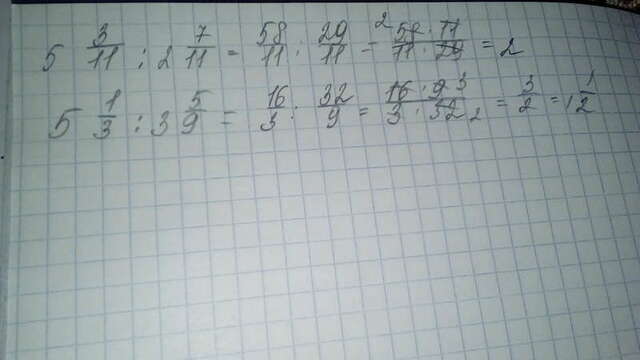 5 3/11 : 2 7/11 = 58/11 : 29/11 = 58 · 11 / 11 · 29 = 2
5 1/3 : 3 5/9 = 16/3 : 32/9 = 16 · 9 3 / 3 · 32 2 = 3/2 = 1 1/2